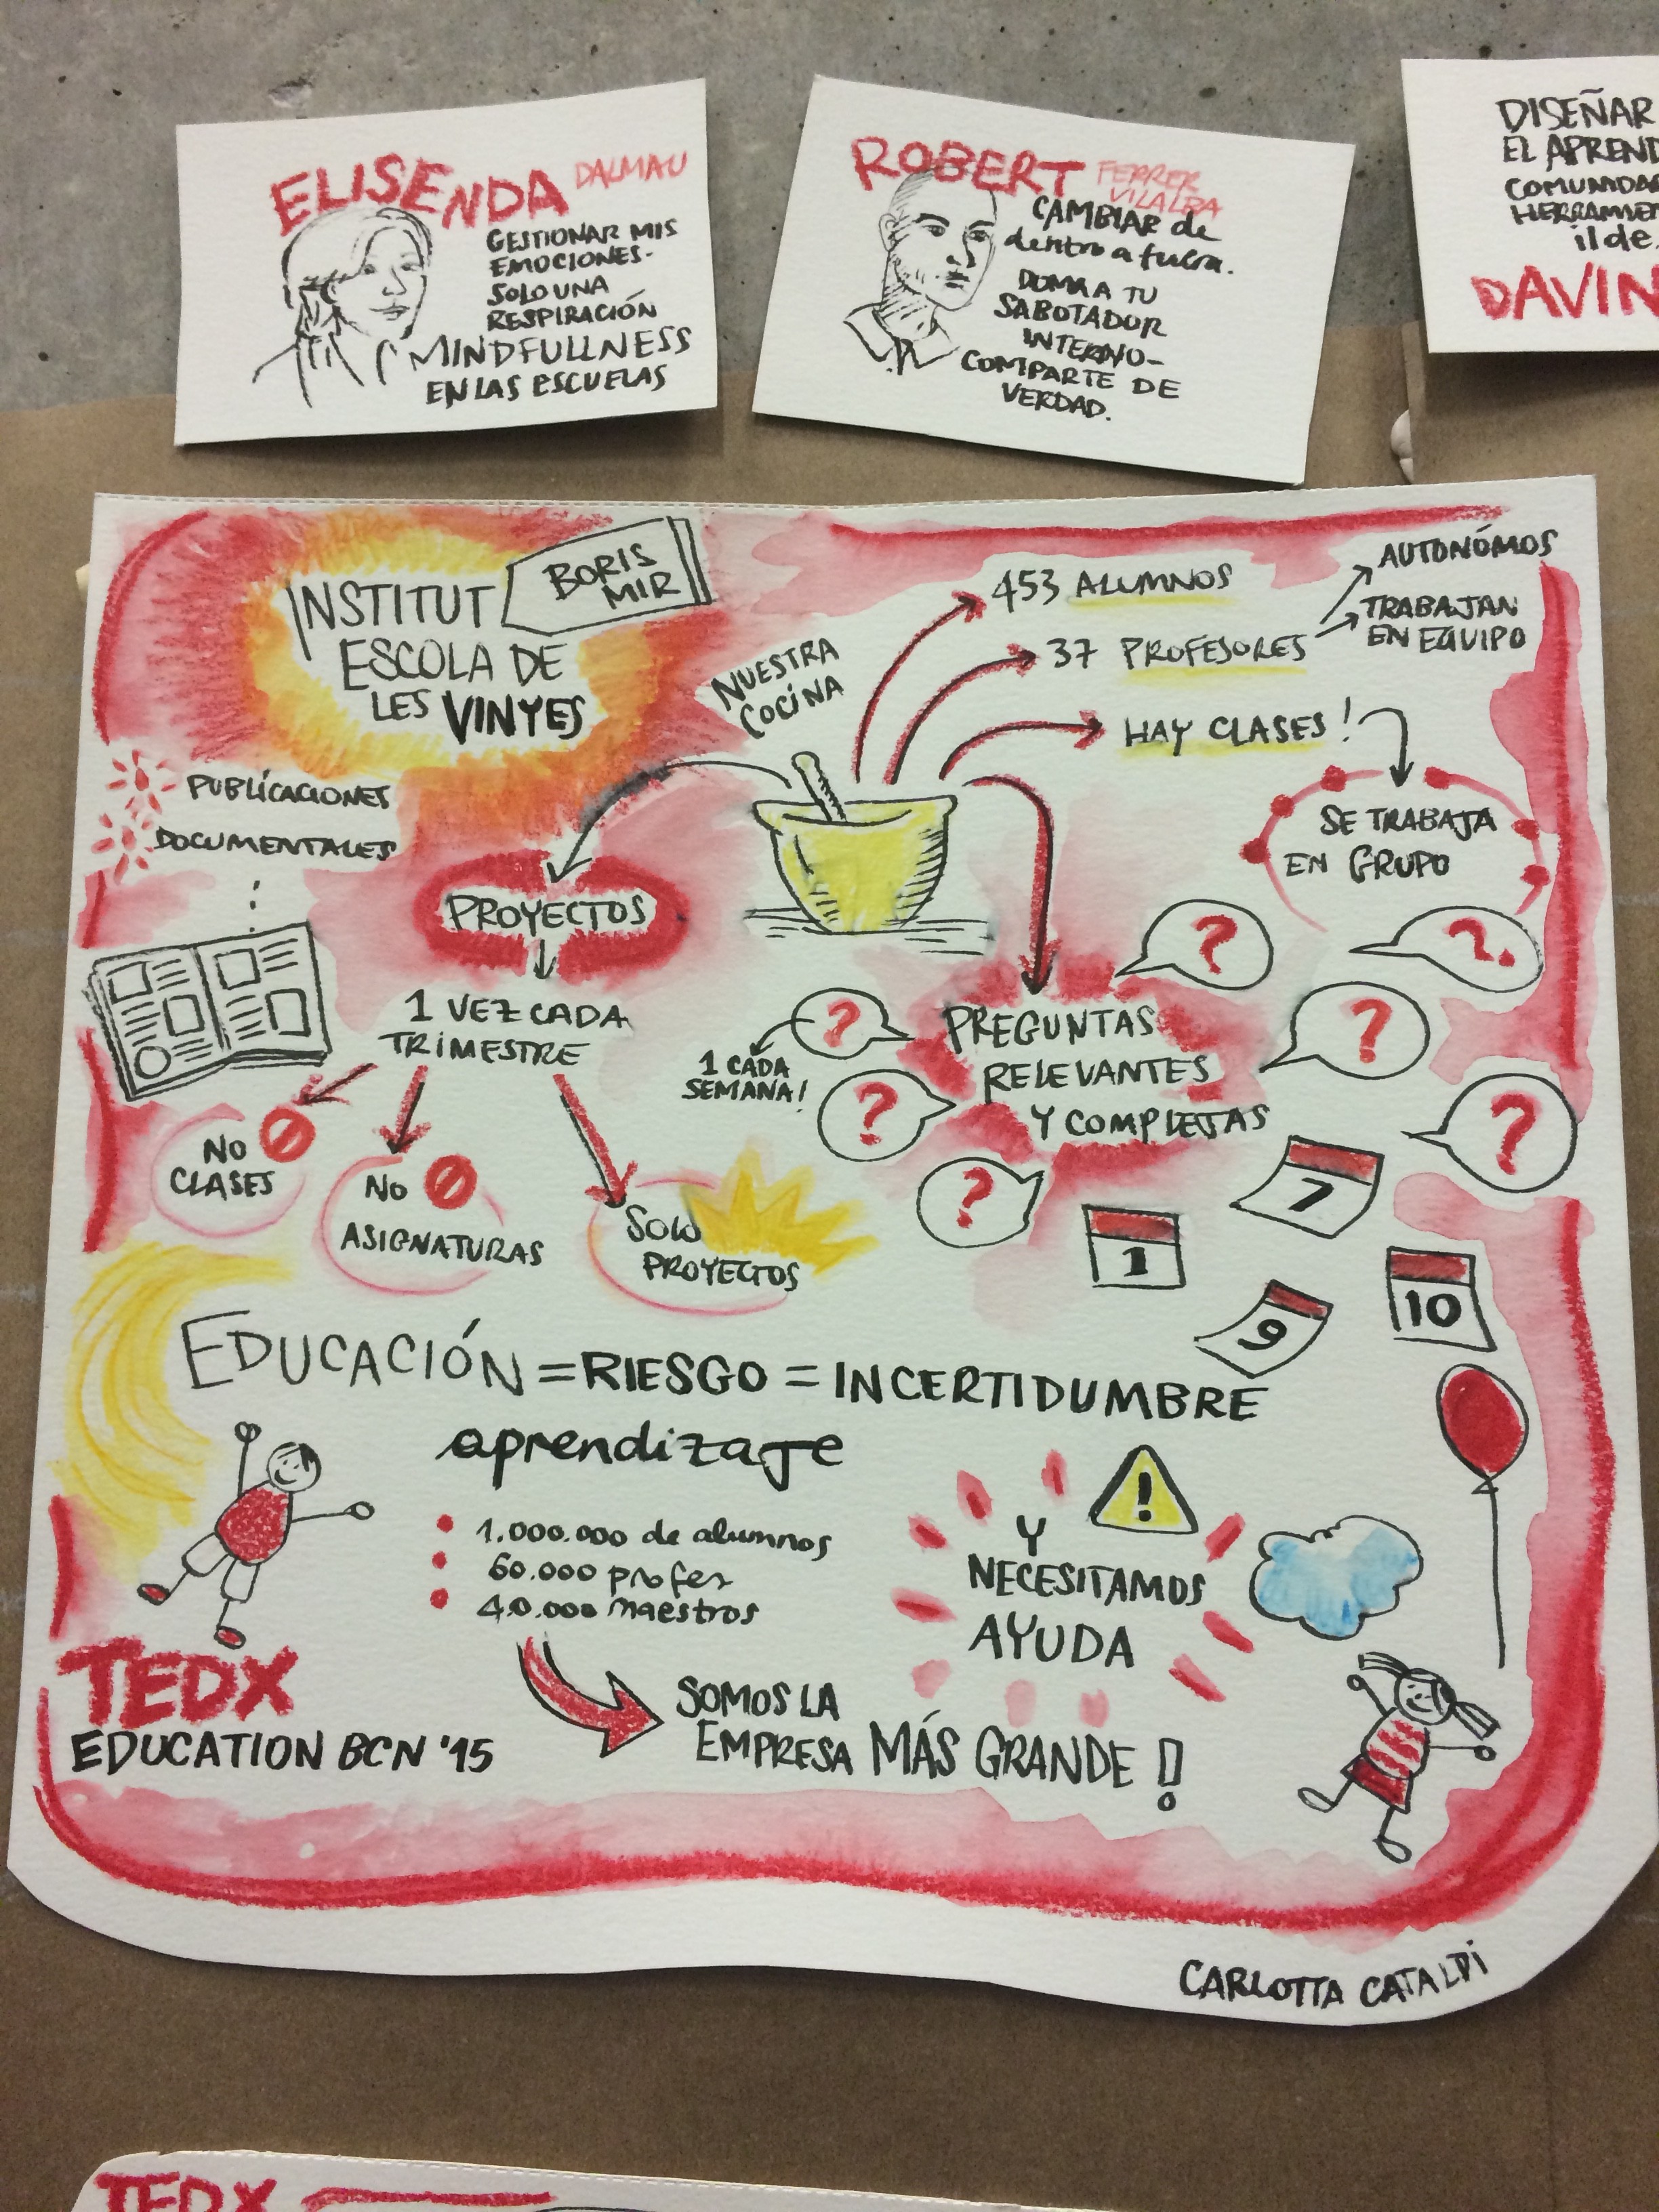 ELISENDA DALMAU
GESTIONAR MIS
EMOCIONES-
SOLO UNA
RESPIRACIÓN
MINDFULLNESS
EN LAS ESCUELAS
ROBERT FERRER
VILALBA
CAMBIAR de
dentro a fuera.
DOMA A TU
SABOTADOR
INTERNO-
COMPARTE DE
VERDAD.
DISEÑAR
EL APREND
COMUNIDA
HERRAMIE
DAVIN
INSTITUT
ESCOLA DE
LES VINYES
BORIS
MIR
NUESTRA
COCINA
453 ALUMNOS
37 PROFESORES
AUTONÓMOS
TRABAJAN
EN EQUIPO
HAY CLASES!
SE TRABAJA
EN GRUPO
PUBLICACIONES
DOCUMENTALES
PROYECTOS
1 VEZ CADA
TRIMESTRE
NO
CLASES
NO
ASIGNATURAS
SOLO
PROYECTOS
PREGUNTAS
RELEVANTES
Y COMPLEJAS
?
?
?
?
?
?
?
1 CADA
SEMANA!
7
1
9
10
EDUCACIÓN = RIESGO = INCERTIDUMBRE
aprendizaje
1.000.000 de alumnos
60.000 profes
40.000 maestros
!
Y
NECESITAMOS
AYUDA
SOMOS LA
EMPRESA MÁS GRANDE!
TEDX
EDUCATION BCN '15
CARLOTTA CATALDI
TEDX